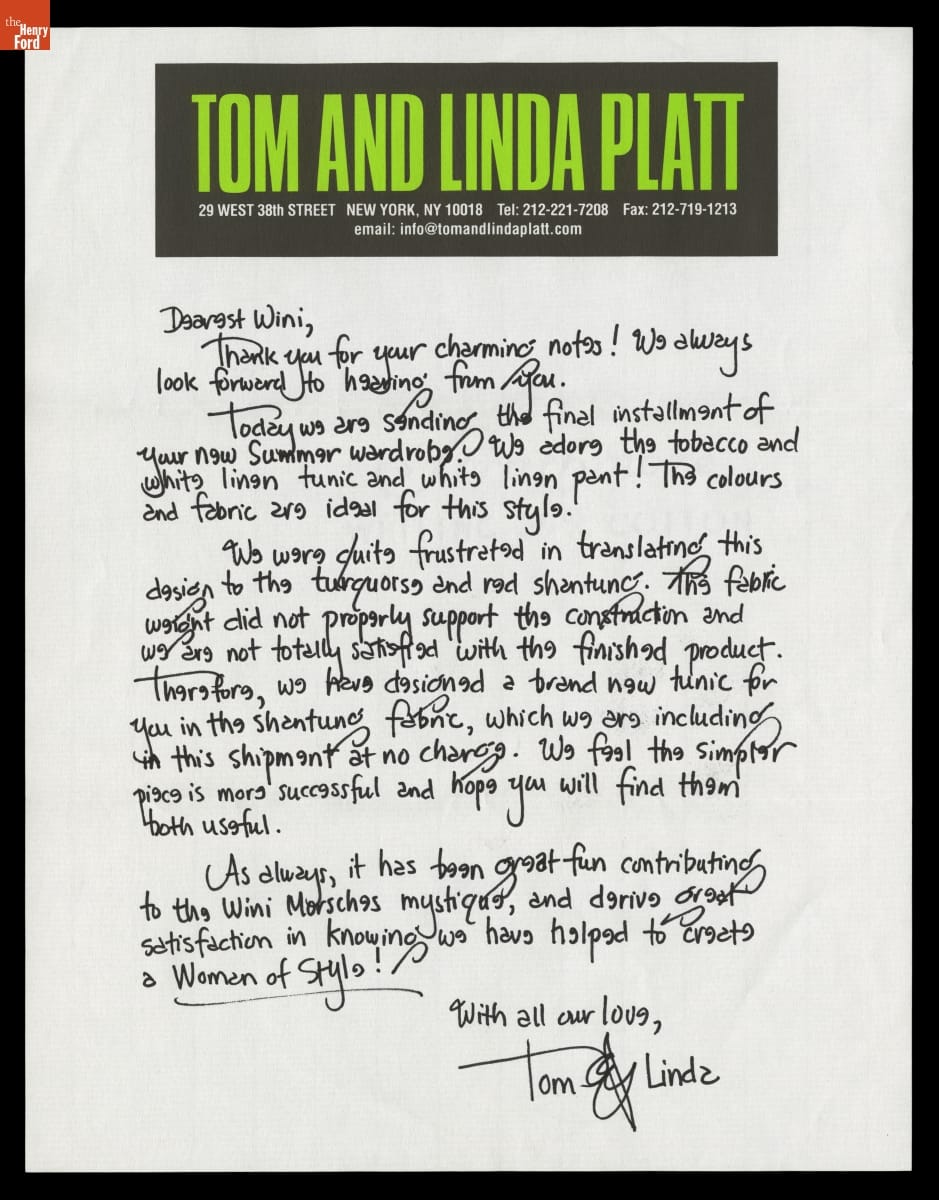 the
Henry
Ford
TOM AND LINDA PLATT
29 WEST 38th STREET NEW YORK, NY 10018 Tel: 212-221-7208 Fax: 212-719-1213
email: info@tomandlindaplatt.com
Dearest Wini,
Thank you for your charming notes! We always
look forward to hearing from you.
Today we are sending the final installment of
your new Summer wardrobe. We adore the tobacco and
white linen tunic and white linen pant! The colours
and fabric are ideal for this style.
We were quite frustrated in translating this
design to the turquorse and red shantung. The fabric
weight did not properly support the construction and
we are not totally satisfied with the finished product.
Therefore, we have designed a brand new tunic for
you in the shantung fabric, which we are including
in this shipment at no charge. We feel the simpler
piece is more successful and hope you will find them
both useful.
As always, it has been great fun contributing
to the Wini Morsches mystique, and derive great
satisfaction in knowing we have helped to create
a Woman of Style!
With all our love,
Tom & Linda